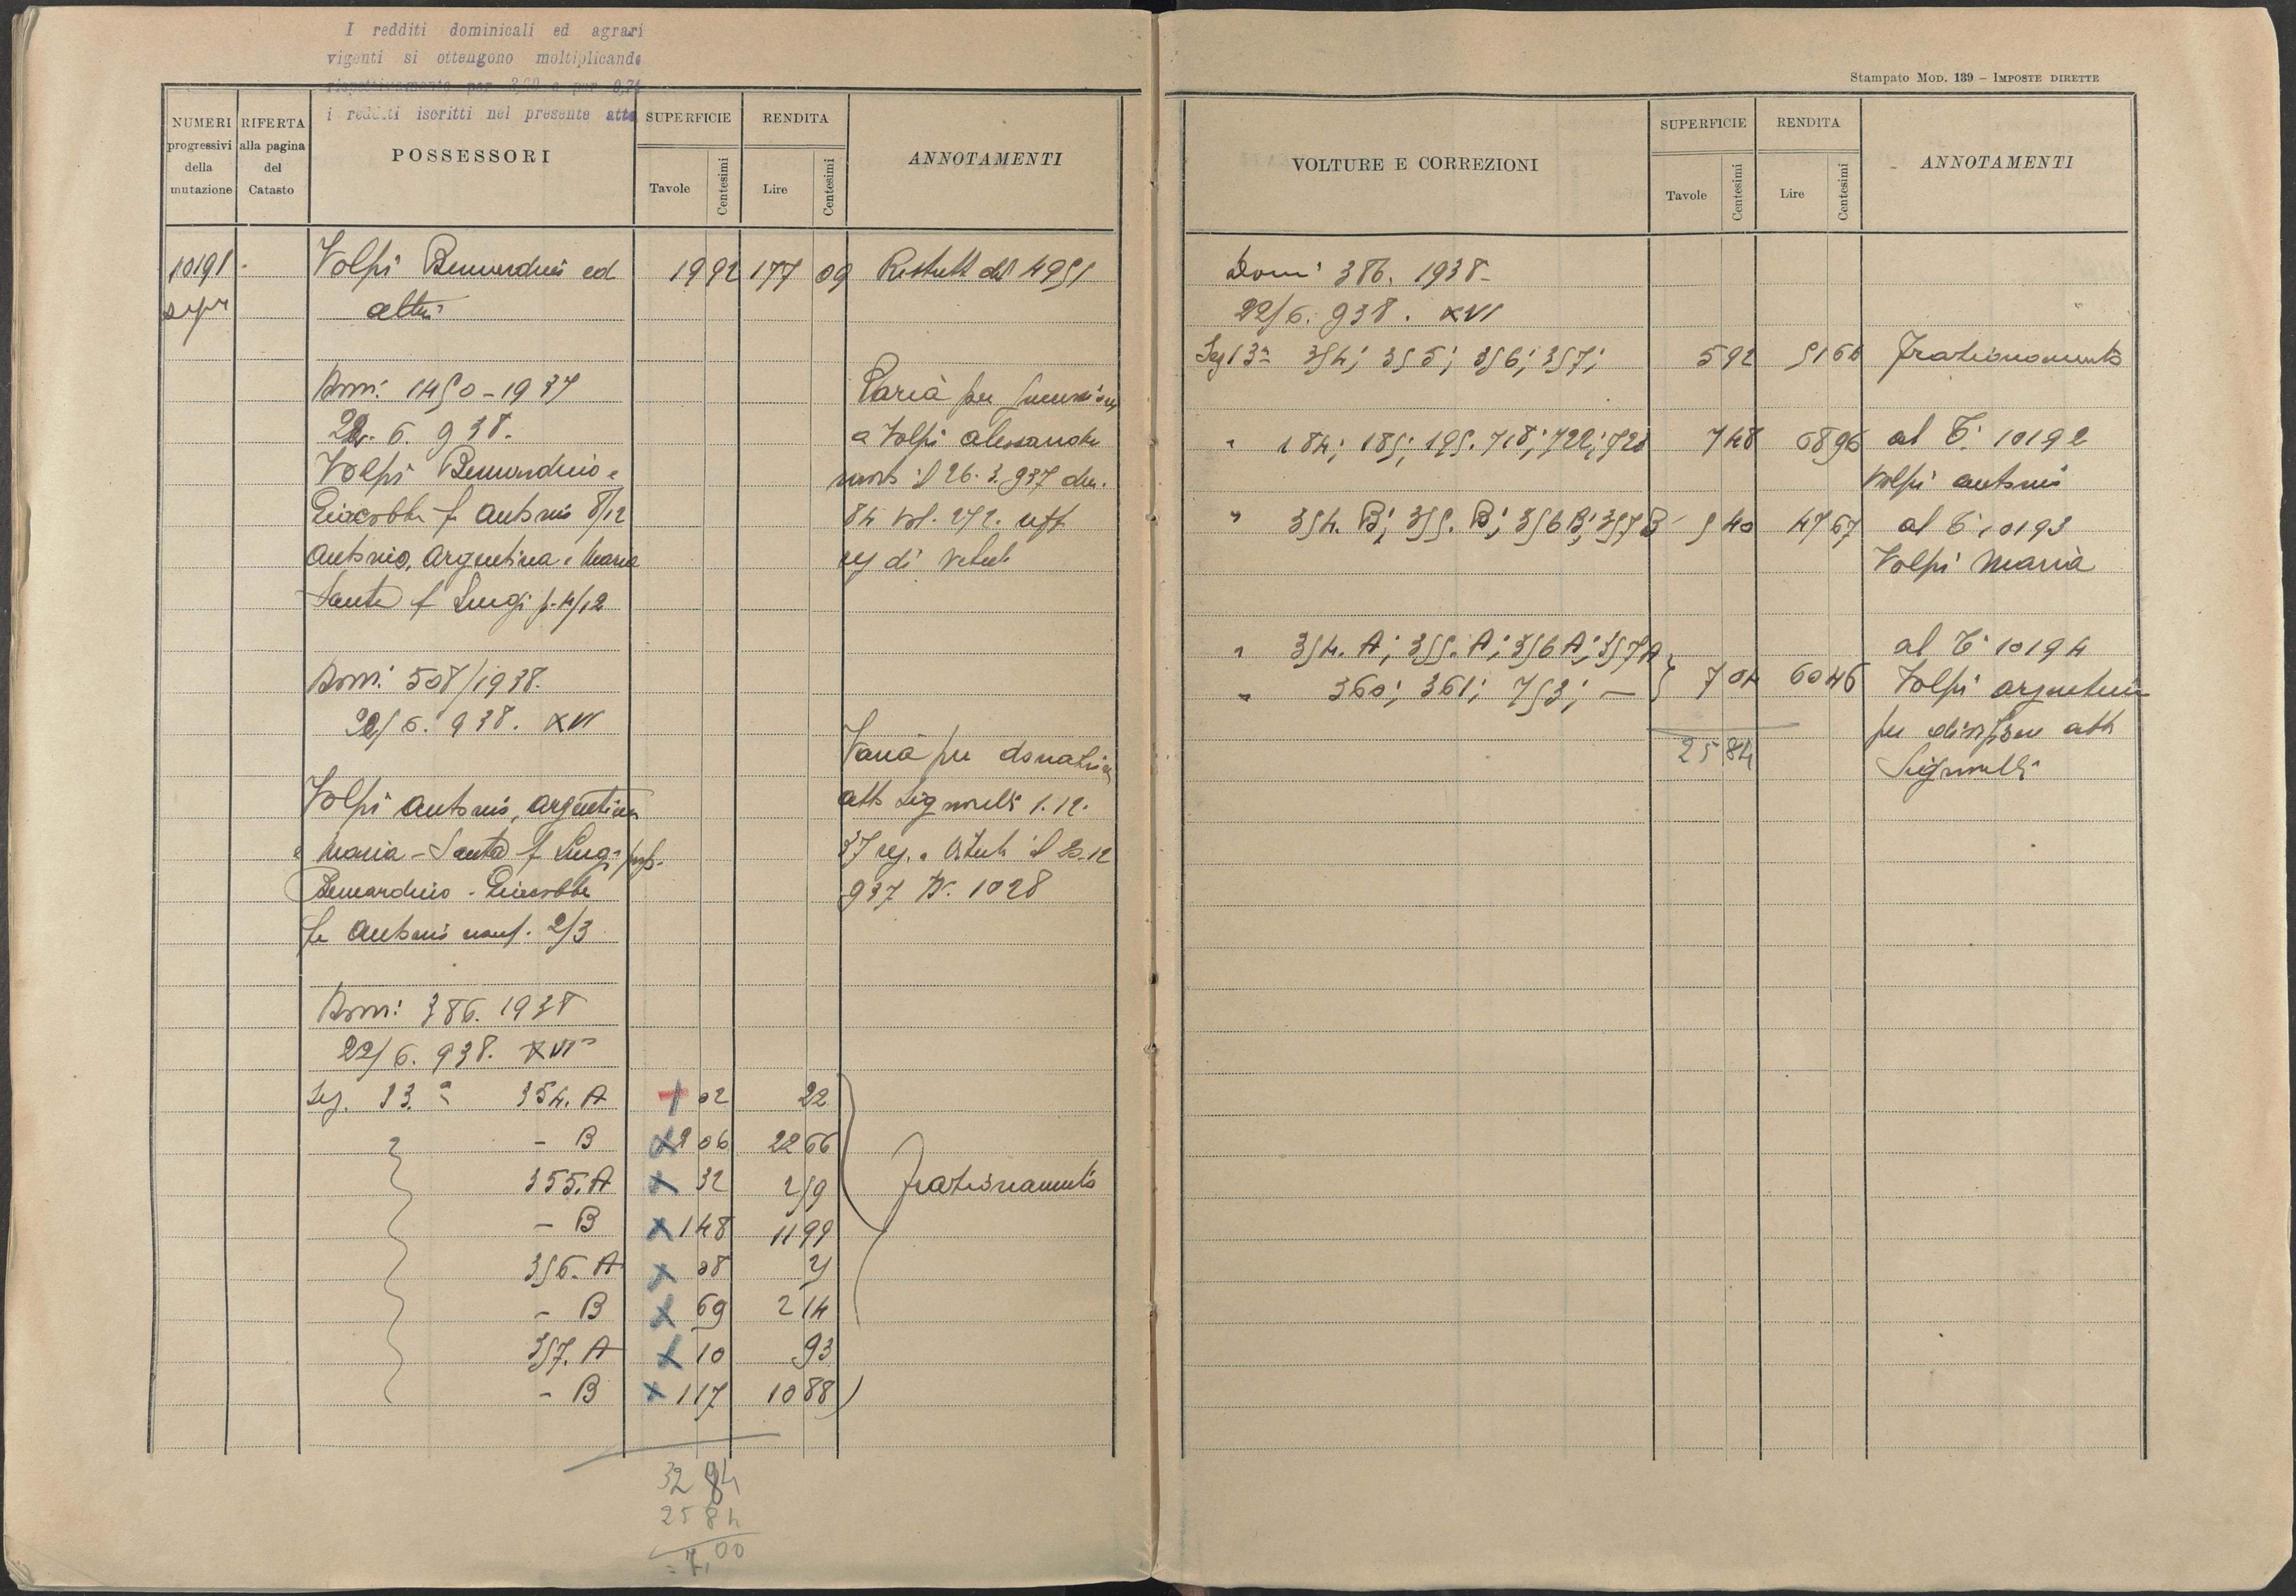 I redditi dominicali ed agrari
vigenti si ottengono moltiplicando
rispettivamente per 3,20 e per 0,74
i redditi iscritti nel presente atto
NUMERI progressivi della mutazione
RIFERTA alla pagina del Catasto
POSSESSORI
SUPERFICIE
Tavole Centesimi
RENDITA
Lire Centesimi
ANNOTAMENTI
10191 Volpi Bernardino ed 19 92 177 09 Restutt dal 4951
altri
Dom: 1450-1937 Varia per successione
22. 6. 938. a Volpi Alessandro
Volpi Bernardino e morto il 26. 3. 937 den.
Giacobbe f Antonio 8/12 84 vol. 272. uff
Antonio, Argentina e Maria reg di
Santa f Luigi p. 4/12
Dom: 508/1938.
22/6. 938. XVI
Varia per donazione
Volpi Antonio, Argentina atto Signorelli 1.12.
e Maria-Santa f Luigi prop. 37 reg. a il 20-12
Bernardino-Giacobbe 937 N. 1028
fu Antonio usuf. 2/3
Dom: 386. 1938
22/6. 938. XVI
Sez. 13.a 354. A 02 22
- B 2 06 22 66
355. A 32 2 59 Frazionamento
- B 1 48 11 99
356. A 08 25
- B 69 2 14
357. A 10 93
- B 1 17 10 88
32 84
25 84
= 7,00
Stampato Mod. 139 – Imposte dirette
VOLTURE E CORREZIONI
SUPERFICIE
Tavole Centesimi
RENDITA
Lire Centesimi
ANNOTAMENTI
Dom: 386. 1938-
22/6. 938. XVI
Sez 13a 354; 355; 356; 357; 5 92 51 66 Frazionamento
" 184; 185; 195. 718; 722; 723 7 48 68 96 al T. 10192
Volpi Antonio
" 354. B; 355. B; 356 B; 357 B 5 40 47 67 al T. 10193
Volpi Maria
" 354. A; 355. A; 356 A; 357 A al T. 10194
" 360; 361; 753; — 7 04 60 46 Volpi Argentina
per divisione atto
25 84 Signorelli